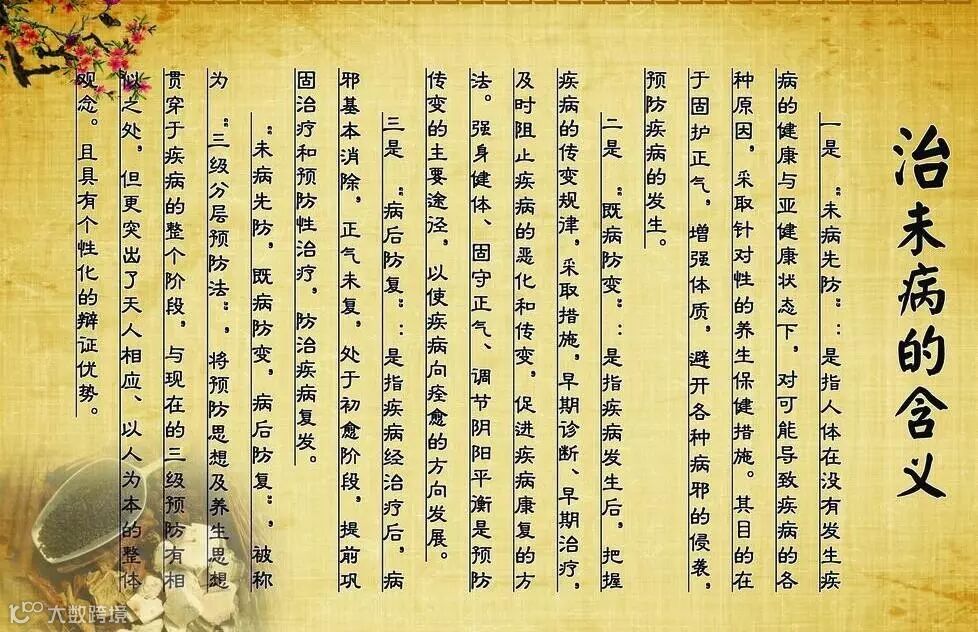 治未病的含义
一是“未病先防”：是指人体在没有发生疾
病的健康与亚健康状态下，对可能导致疾病的各
种原因，采取针对性的养生保健措施。其目的在
于固护正气，增强体质，避开各种病邪的侵袭，
预防疾病的发生。
二是“既病防变”：是指疾病发生后，把握
疾病的传变规律，采取措施，早期诊断、早期治疗，
及时阻止疾病的恶化和传变，促进疾病康复的方
法。强身健体、固守正气、调节阴阳平衡是预防
传变的主要途径，以使疾病向痊愈的方向发展。
三是“病后防复”：是指疾病经治疗后，病
邪基本消除，正气未复，处于初愈阶段，提前巩
固治疗和预防性治疗，防治疾病复发。
“未病先防，既病防变，病后防复”，被称
为“三级分层预防法”，将预防思想及养生思想
贯穿于疾病的整个阶段，与现在的三级预防有相
似之处，但更突出了天人相应、以人为本的整体
观念。且具有个性化的辩证优势。
大数跨境